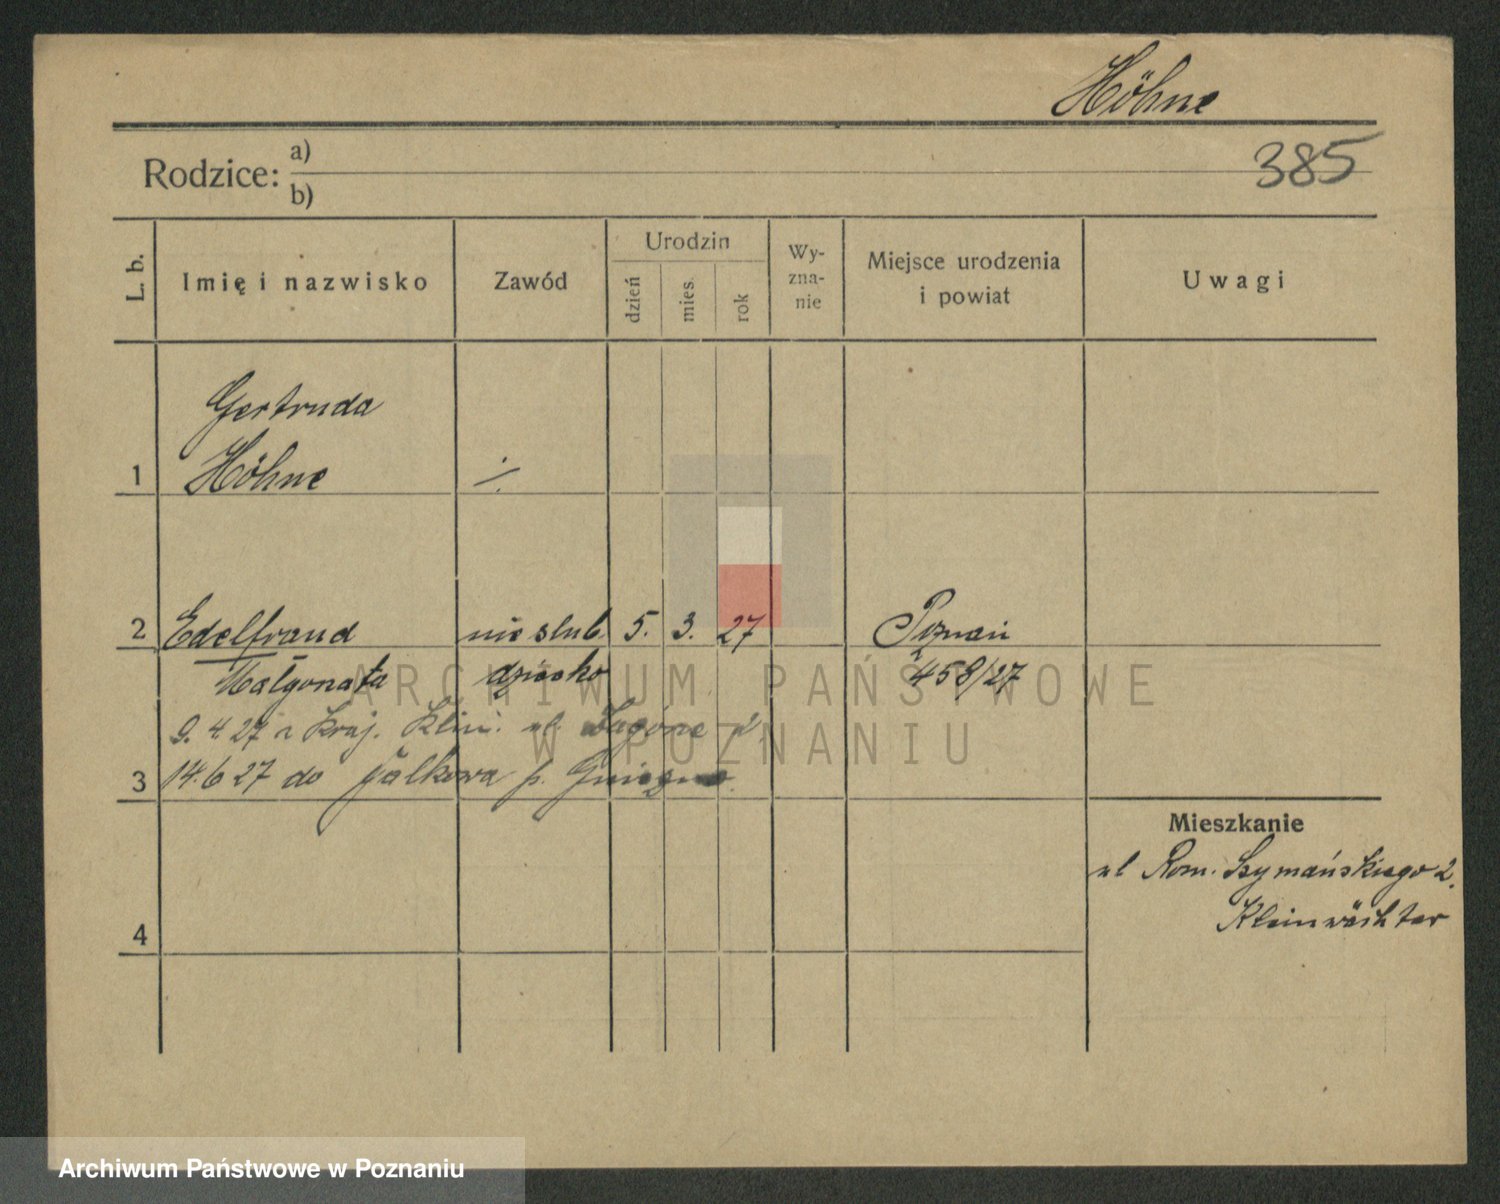 Höhne
Rodzice: a)
b)
385
L. b.
Imię i nazwisko
Zawód
Urodzin
dzień
mies.
rok
Wy-
zna-
nie
Miejsce urodzenia
i powiat
Uwagi
Gertruda
1 Höhne ./.
2 Edeltraud nie slub. 5. 3. 27 Poznań
Małgorzata dziecko 458/27
9. 4. 27 z Kraj. Klin. ul.
3 14.6 27 do Jalkowa p. Gniezno
Mieszkanie
ul Rom. Szymańskiego 2.
Kleinwächter
4
ARCHIWUM PAŃSTWOWE
W POZNANIU
Archiwum Państwowe w Poznaniu